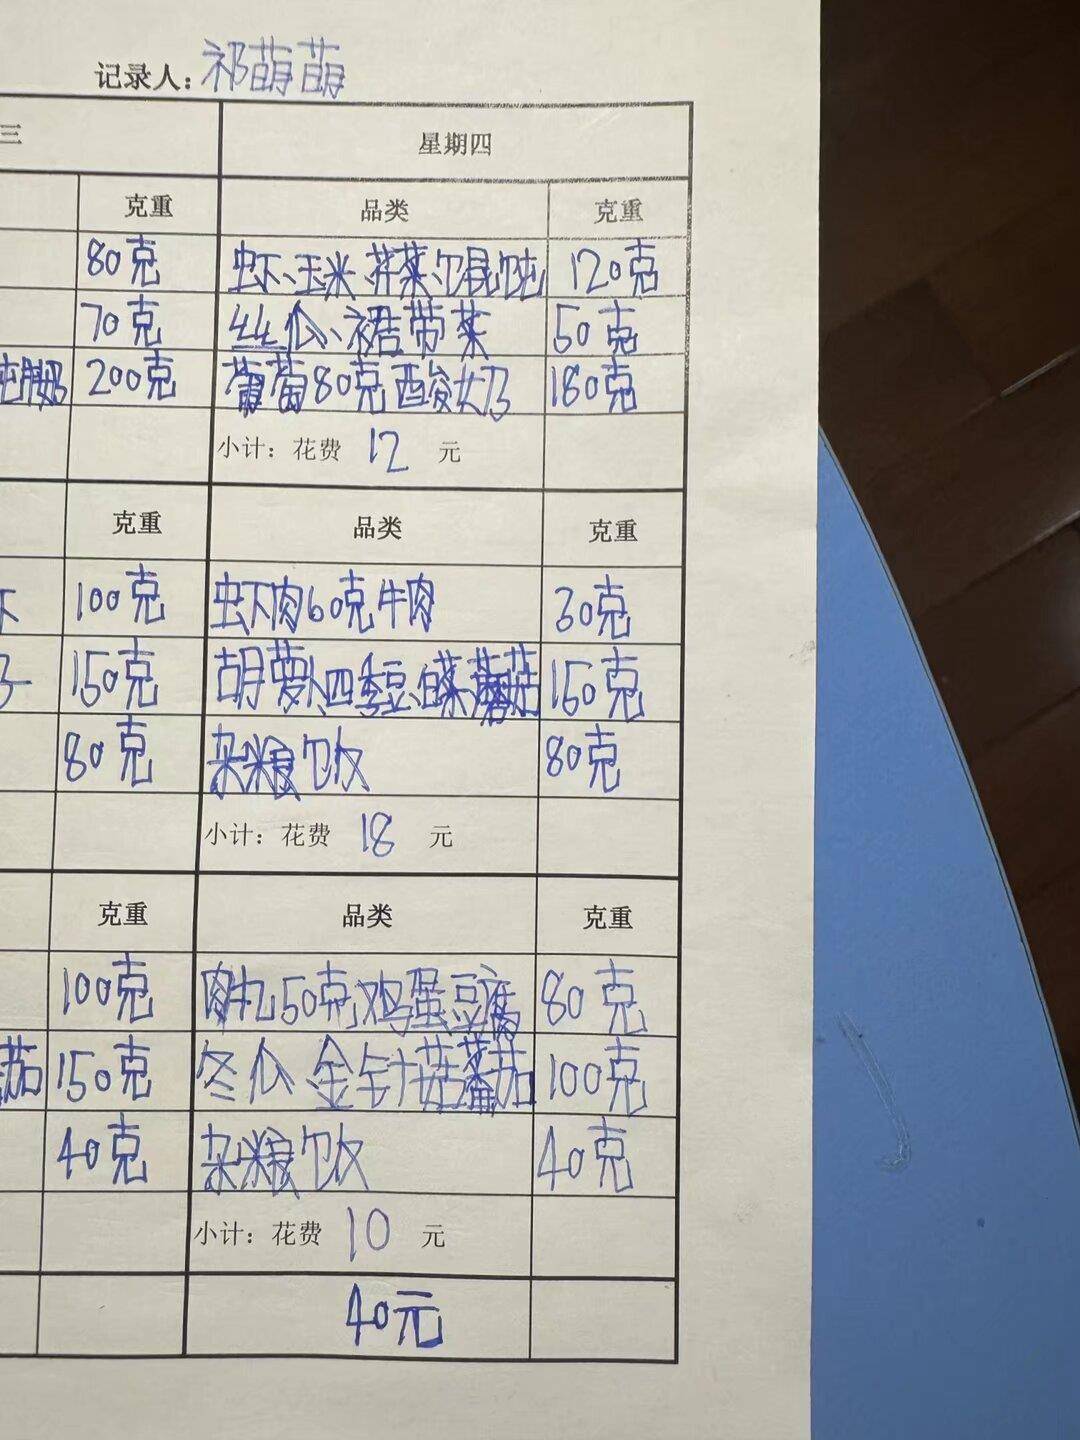 记录人：祁萌萌
三 星期四
克重 品类 克重
80克 虾、玉米、荠菜小馄饨 120克
70克 丝瓜、裙带菜 50克
炖奶 200克 葡萄80克酸奶 180克
小计：花费 12 元
克重 品类 克重
100克 虾肉60克牛肉 30克
150克 胡萝卜、四季豆、白菜、蘑菇 150克
80克 杂粮饭 80克
小计：花费 18 元
克重 品类 克重
100克 肉丸50克鸡蛋豆腐 80克
茄 150克 冬瓜 金针菇蕃茄 100克
40克 杂粮饭 40克
小计：花费 10 元
40元